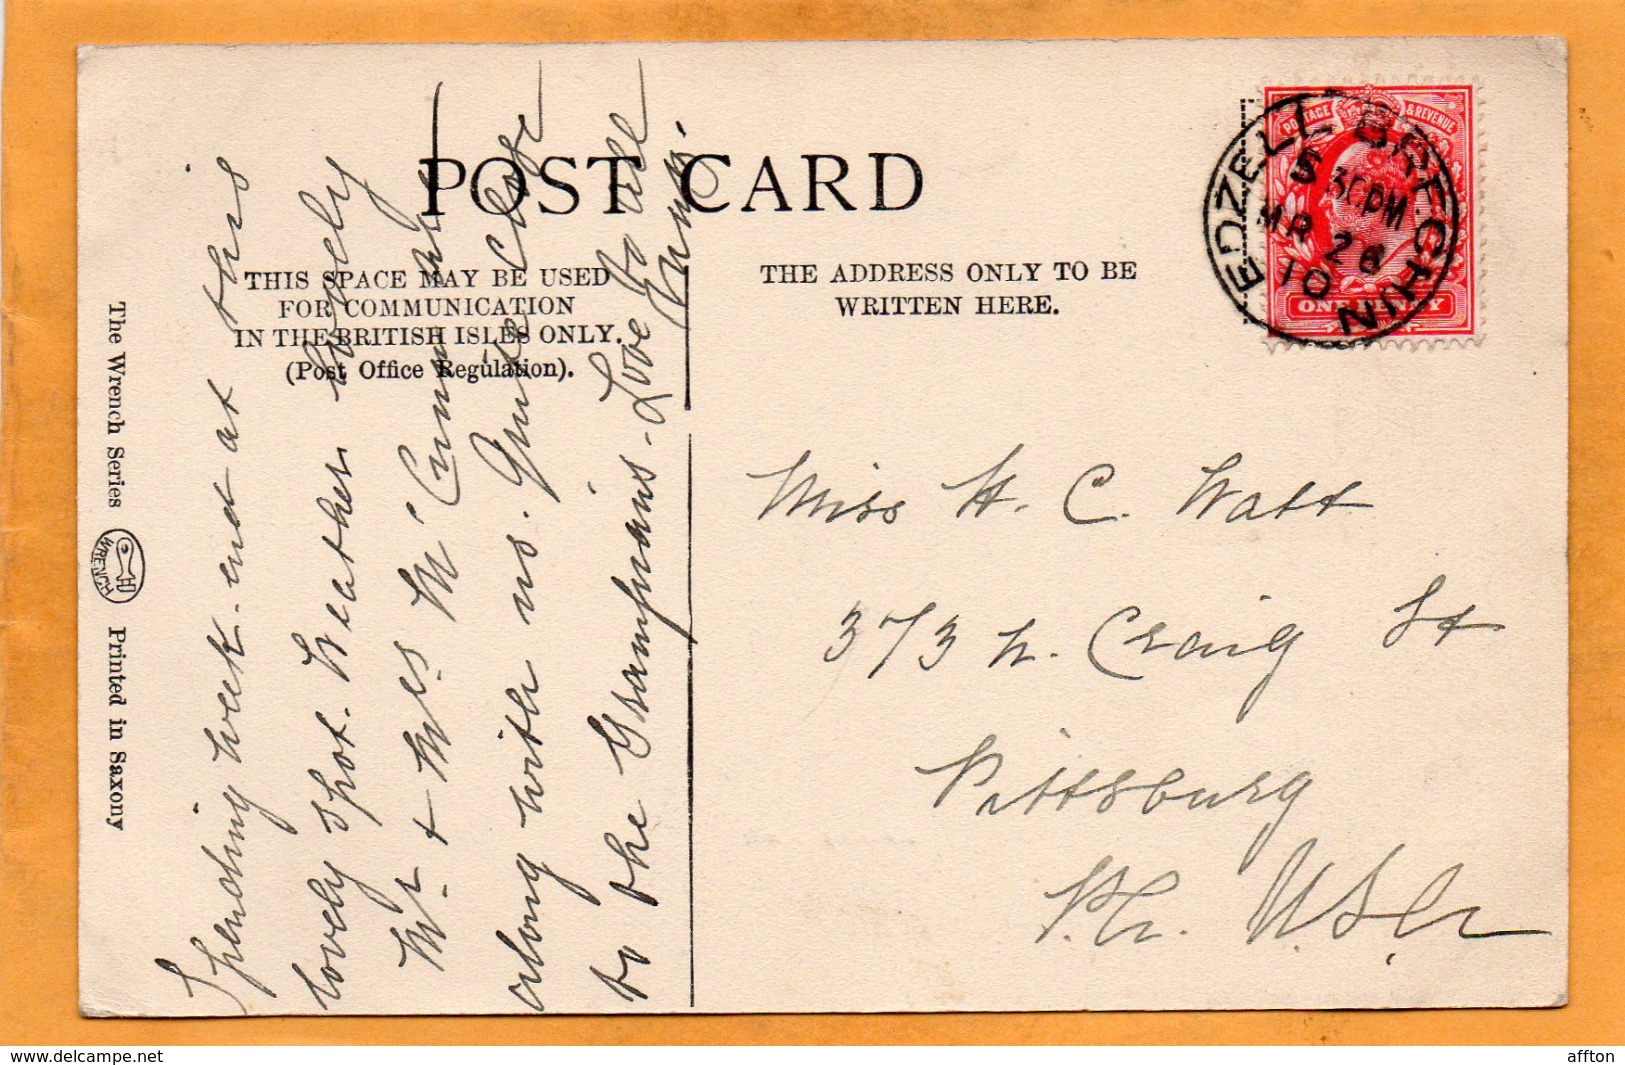 POST CARD
THIS SPACE MAY BE USED
FOR COMMUNICATION
IN THE BRITISH ISLES ONLY.
(Post Office Regulation).
THE ADDRESS ONLY TO BE
WRITTEN HERE.
The Wrench Series
WRENCH
Printed in Saxony
Spending week-end at this
lovely spot. Weather lovely
Mr + Mrs Mc
along with us. Quite close
to the Grampians - Love to all
POSTAGE & REVENUE
ONE PENNY
EDZELL BRECHIN
5 30PM
MR 26
10
Miss H. C. Watt
373 N. Craig St
Pittsburg
Pa. USA
www.delcampe.net
affton